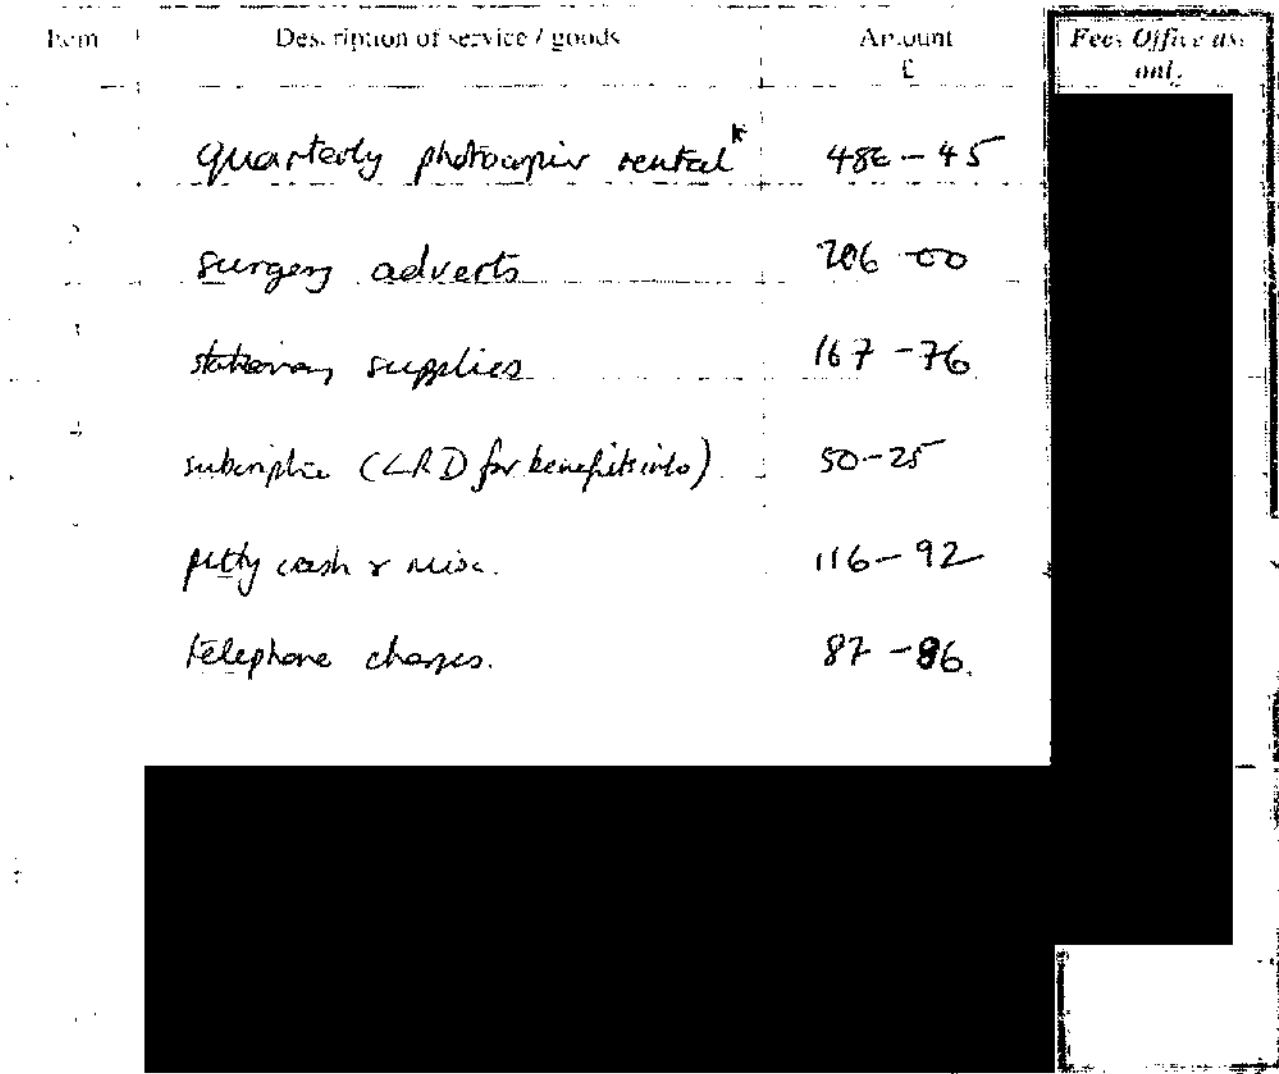 Item Description of service / goods Amount Fees Office use
£ only.
quarterly photocopier rental
surgery adverts 206-00
stationary supplies 167-76
4 subscription (LRD for benefits info) 50-25
petty cash & misc. 116-92
telephone charges. 87-86.